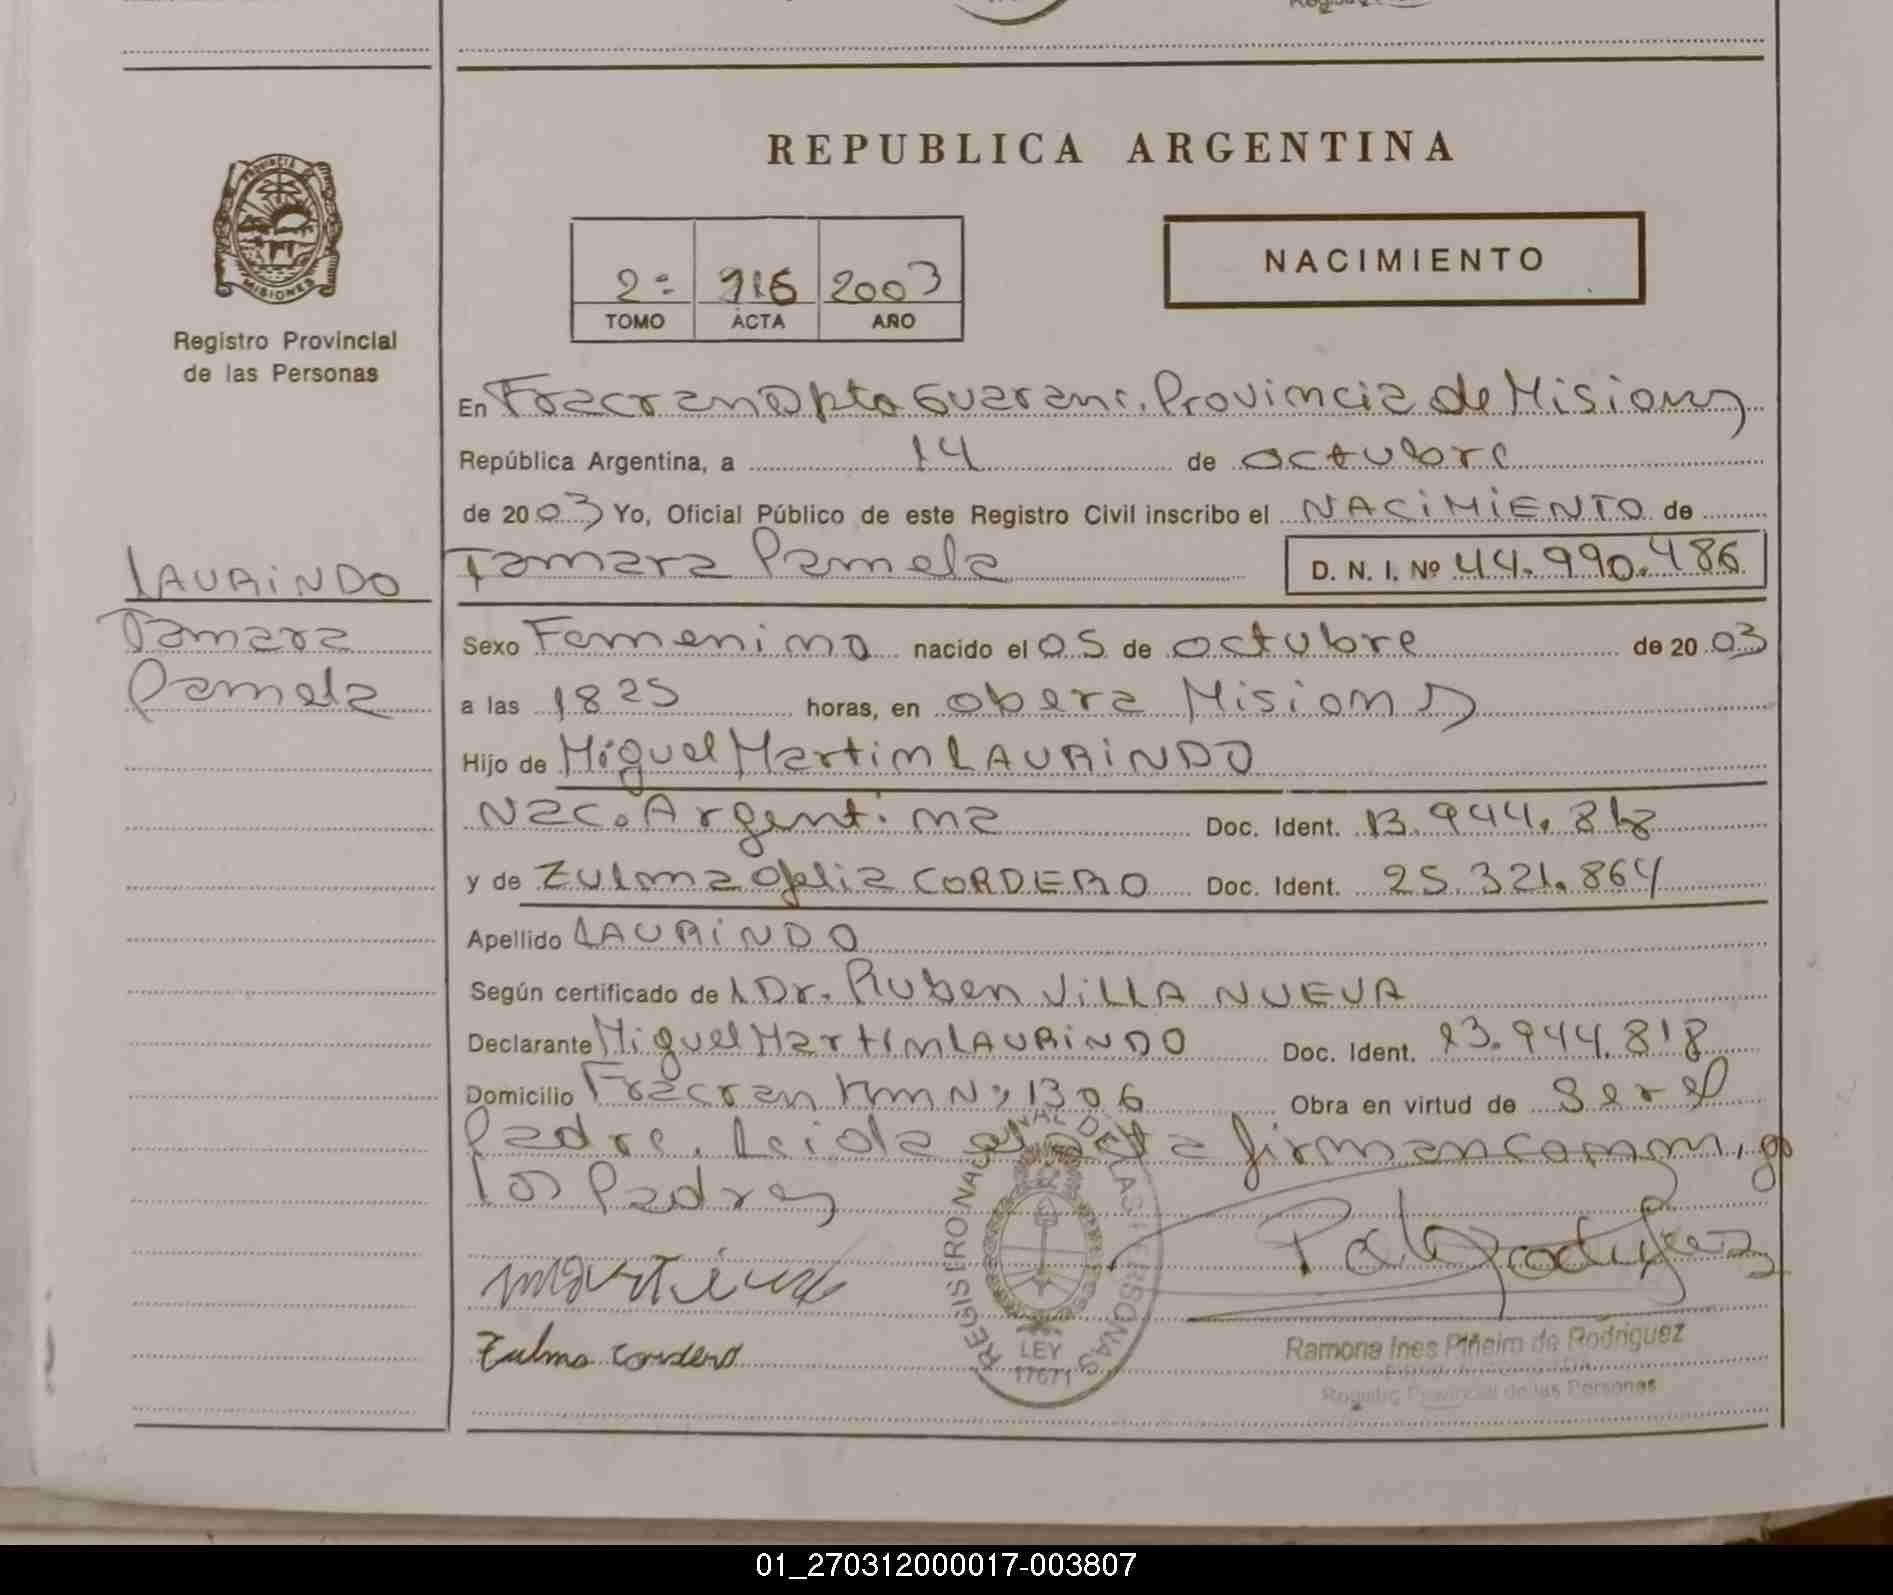 REPUBLICA ARGENTINA
PROVINCIA
MISIONES
Registro Provincial
de las Personas
2º 916 2003
TOMO ACTA AÑO
NACIMIENTO
En Fracran Dpto Guarani. Provincia de Misiones
República Argentina, a 14 de octubre
de 2003 Yo, Oficial Público de este Registro Civil inscribo el NACIMIENTO de
LAURINDO
Tamara
Pamela
Tamara Pamela D. N. I. Nº 44.990.486
Sexo Femenino nacido el 05 de octubre de 2003
a las 1825 horas, en obera Misiones
Hijo de Miguel Martin LAURINDO
Nac. Argentina Doc. Ident. 13.944.818
y de Zulma Ofelia CORDERO Doc. Ident. 25.321.864
Apellido LAURINDO
Según certificado de Dr. Ruben VILLA NUEVA
Declarante Miguel Martin LAURINDO Doc. Ident. 13.944.818
Domicilio Fracran Km Nº 1306 Obra en virtud de Ser el
Padre. Leida el acta firman conmigo
los Padres
REGISTRO NACIONAL DE LAS PERSONAS
LEY
17671
Zulma Cordero
Ramona Ines Piñeiro de Rodriguez
Registro Provincial de las Personas
01_270312000017-003807